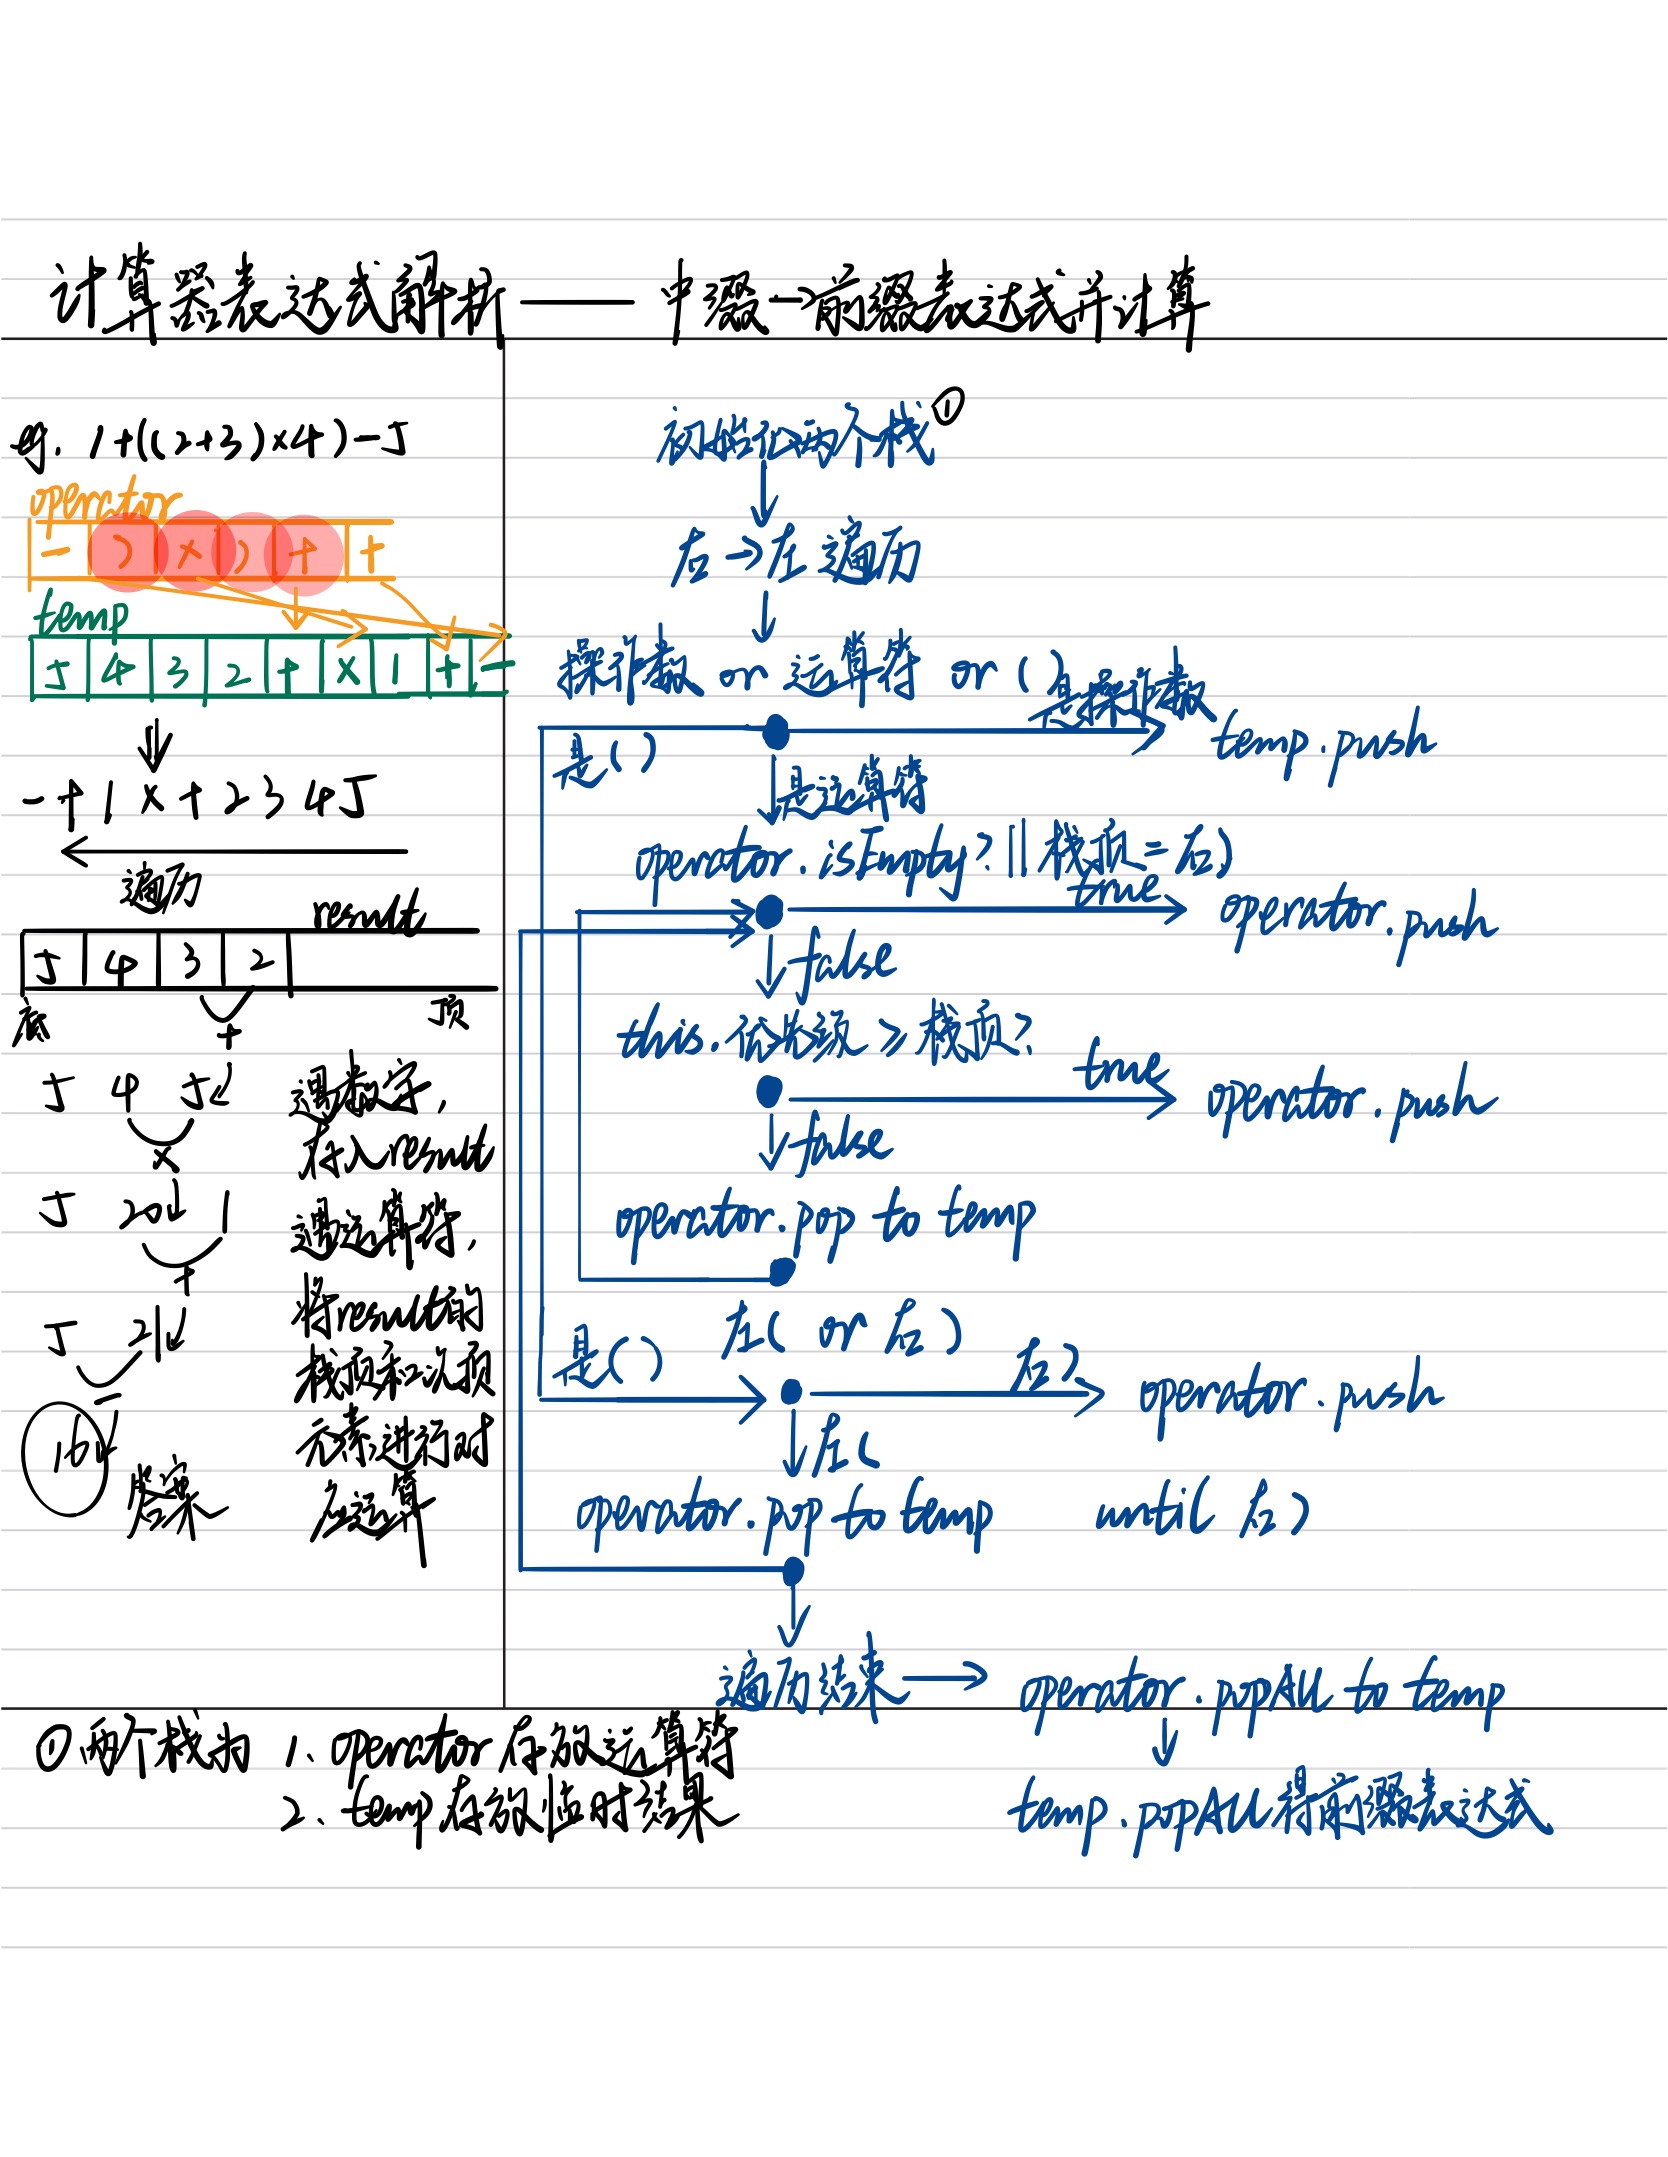 计算器表达式解析——中缀→前缀表达式并计算
eg. 1+((2+3)×4)-5
operator
- ) × ) + +
temp
5 4 3 2 + × 1 + -
- + 1 × + 2 3 4 5
遍历
result
5 4 3 2
底 顶
+
5 4 5
×
5 20 1
+
5 21
-
16
答案
遇数字,
存入result
遇运算符,
将result的
栈顶和次顶
元素进行对
应运算
初始化两个栈①
右→左 遍历
操作数 or 运算符 or ()
是操作数
temp.push
是()
是运算符
operator.isEmpty? || 栈顶=右)
true
operator.push
false
this.优先级 ≥ 栈顶?
true
operator.push
false
operator.pop to temp
左( or 右)
是()
右)
operator.push
左(
operator.pop to temp until 右)
遍历结束 → operator.popAll to temp
temp.popAll得前缀表达式
①两个栈为 1、operator存放运算符
2、temp存放临时结果